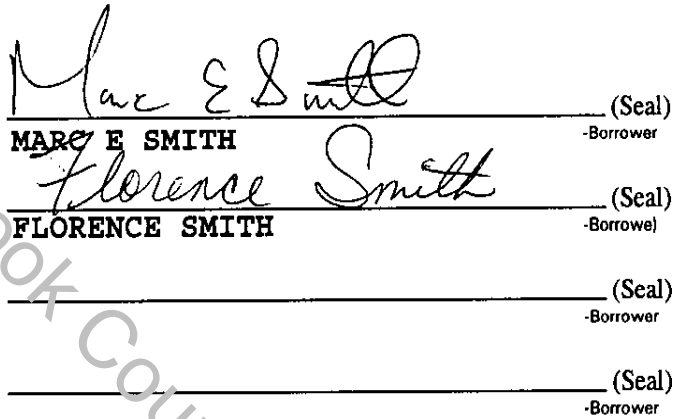 Marc E Smith (Seal)
MARC E SMITH -Borrower
Florence Smith (Seal)
FLORENCE SMITH -Borrowel
(Seal)
-Borrower
(Seal)
-Borrower
ook Cou